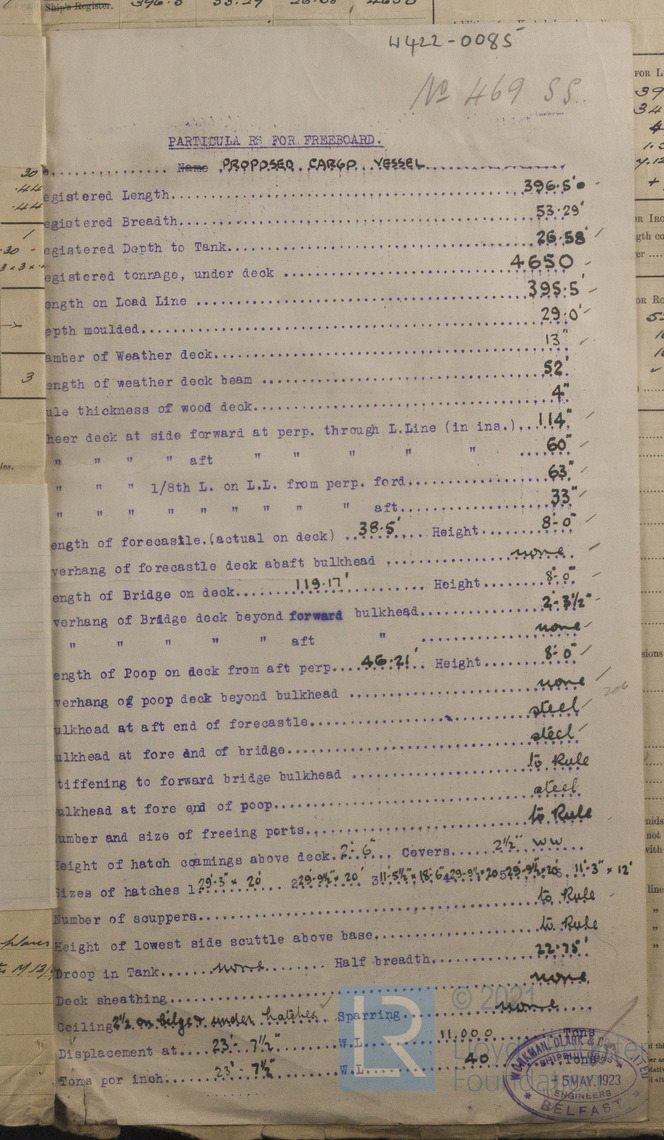 Ship's Register. 396.5 53.29 26.58 4650
W422-0085
No 469 SS.
PARTICULARS FOR FREEBOARD.
Name PROPOSED CARGO VESSEL
egistered Length 396.5'
egistered Breadth 53.29'
egistered Depth to Tank 26.58'
egistered tonnage, under deck 4650
ength on Load Line 395.5'
epth moulded 29.0'
amber of Weather deck 13"
ength of weather deck beam 52'
ule thickness of wood deck 4"
heer deck at side forward at perp. through L.Line (in ins.) 114"
" " " aft " " " " " 60"
" " " 1/8th L. on L.L. from perp. ford 63"
" " " " " " " " aft 33"
ength of forecastle.(actual on deck) 38.5' Height 8'-0"
verhang of forecastle deck abaft bulkhead none
ength of Bridge on deck 119.17' Height 8'-0"
verhang of Bridge deck beyond forward bulkhead 2'-3½"
" " " " " aft " none
ength of Poop on deck from aft perp. 46.21' Height 8'-0"
verhang of poop deck beyond bulkhead none
ulkhead at aft end of forecastle steel
ulkhead at fore end of bridge steel
tiffening to forward bridge bulkhead to Rule
ulkhead at fore end of poop steel
umber and size of freeing ports to Rule
Height of hatch coamings above deck 2'-6" Covers 2½" ww
Sizes of hatches 1 29'-3" x 20' 2 29'-9½" x 20' 3 11'-5½" x 18'-6 4 29'-9½ x 20 5 29'-9½ x 20' 11'-3" x 12'
Number of scuppers to Rule
Height of lowest side scuttle above base to Rule
Droop in Tank none Half breadth 22.75'
Deck sheathing none
Ceiling 2½ on bilges & under hatches Sparring none
Displacement at 23'-7½" W.L. 11,000 Tons
Tons per inch 23'-7½" W.L. 40 Tons
© 2021
Lloyd's Register
Foundation
WORKMAN, CLARK & CO LIMITED
SHIPBUILDERS
15 MAY. 1923
ENGINEERS
BELFAST